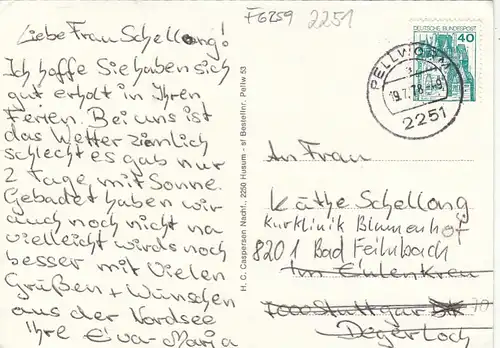 F6259 2251
Liebe Frau Schellong!
Ich hoffe Sie haben sich
gut erholt in Ihren
Ferien. Bei uns ist
das Wetter ziemlich
schlecht es gab nur
2 Tage mit Sonne.
Gebadet haben wir
auch noch nicht na
vielleicht wirds noch
besser mit Vielen
Grüßen + Wünschen
aus der Nordsee
Ihre Eva-Maria
H. C. Caspersen Nachf., 2250 Husum - sf Bestellnr. Pellw 53
DEUTSCHE BUNDESPOST
40
PELLWORM
19.7.78
2251
An Frau
Käthe Schellong
Kurklinik Blumenhof
8201 Bad Feilnbach
Im Eulenkrau
7000 Stuttgart 70
Degerloch